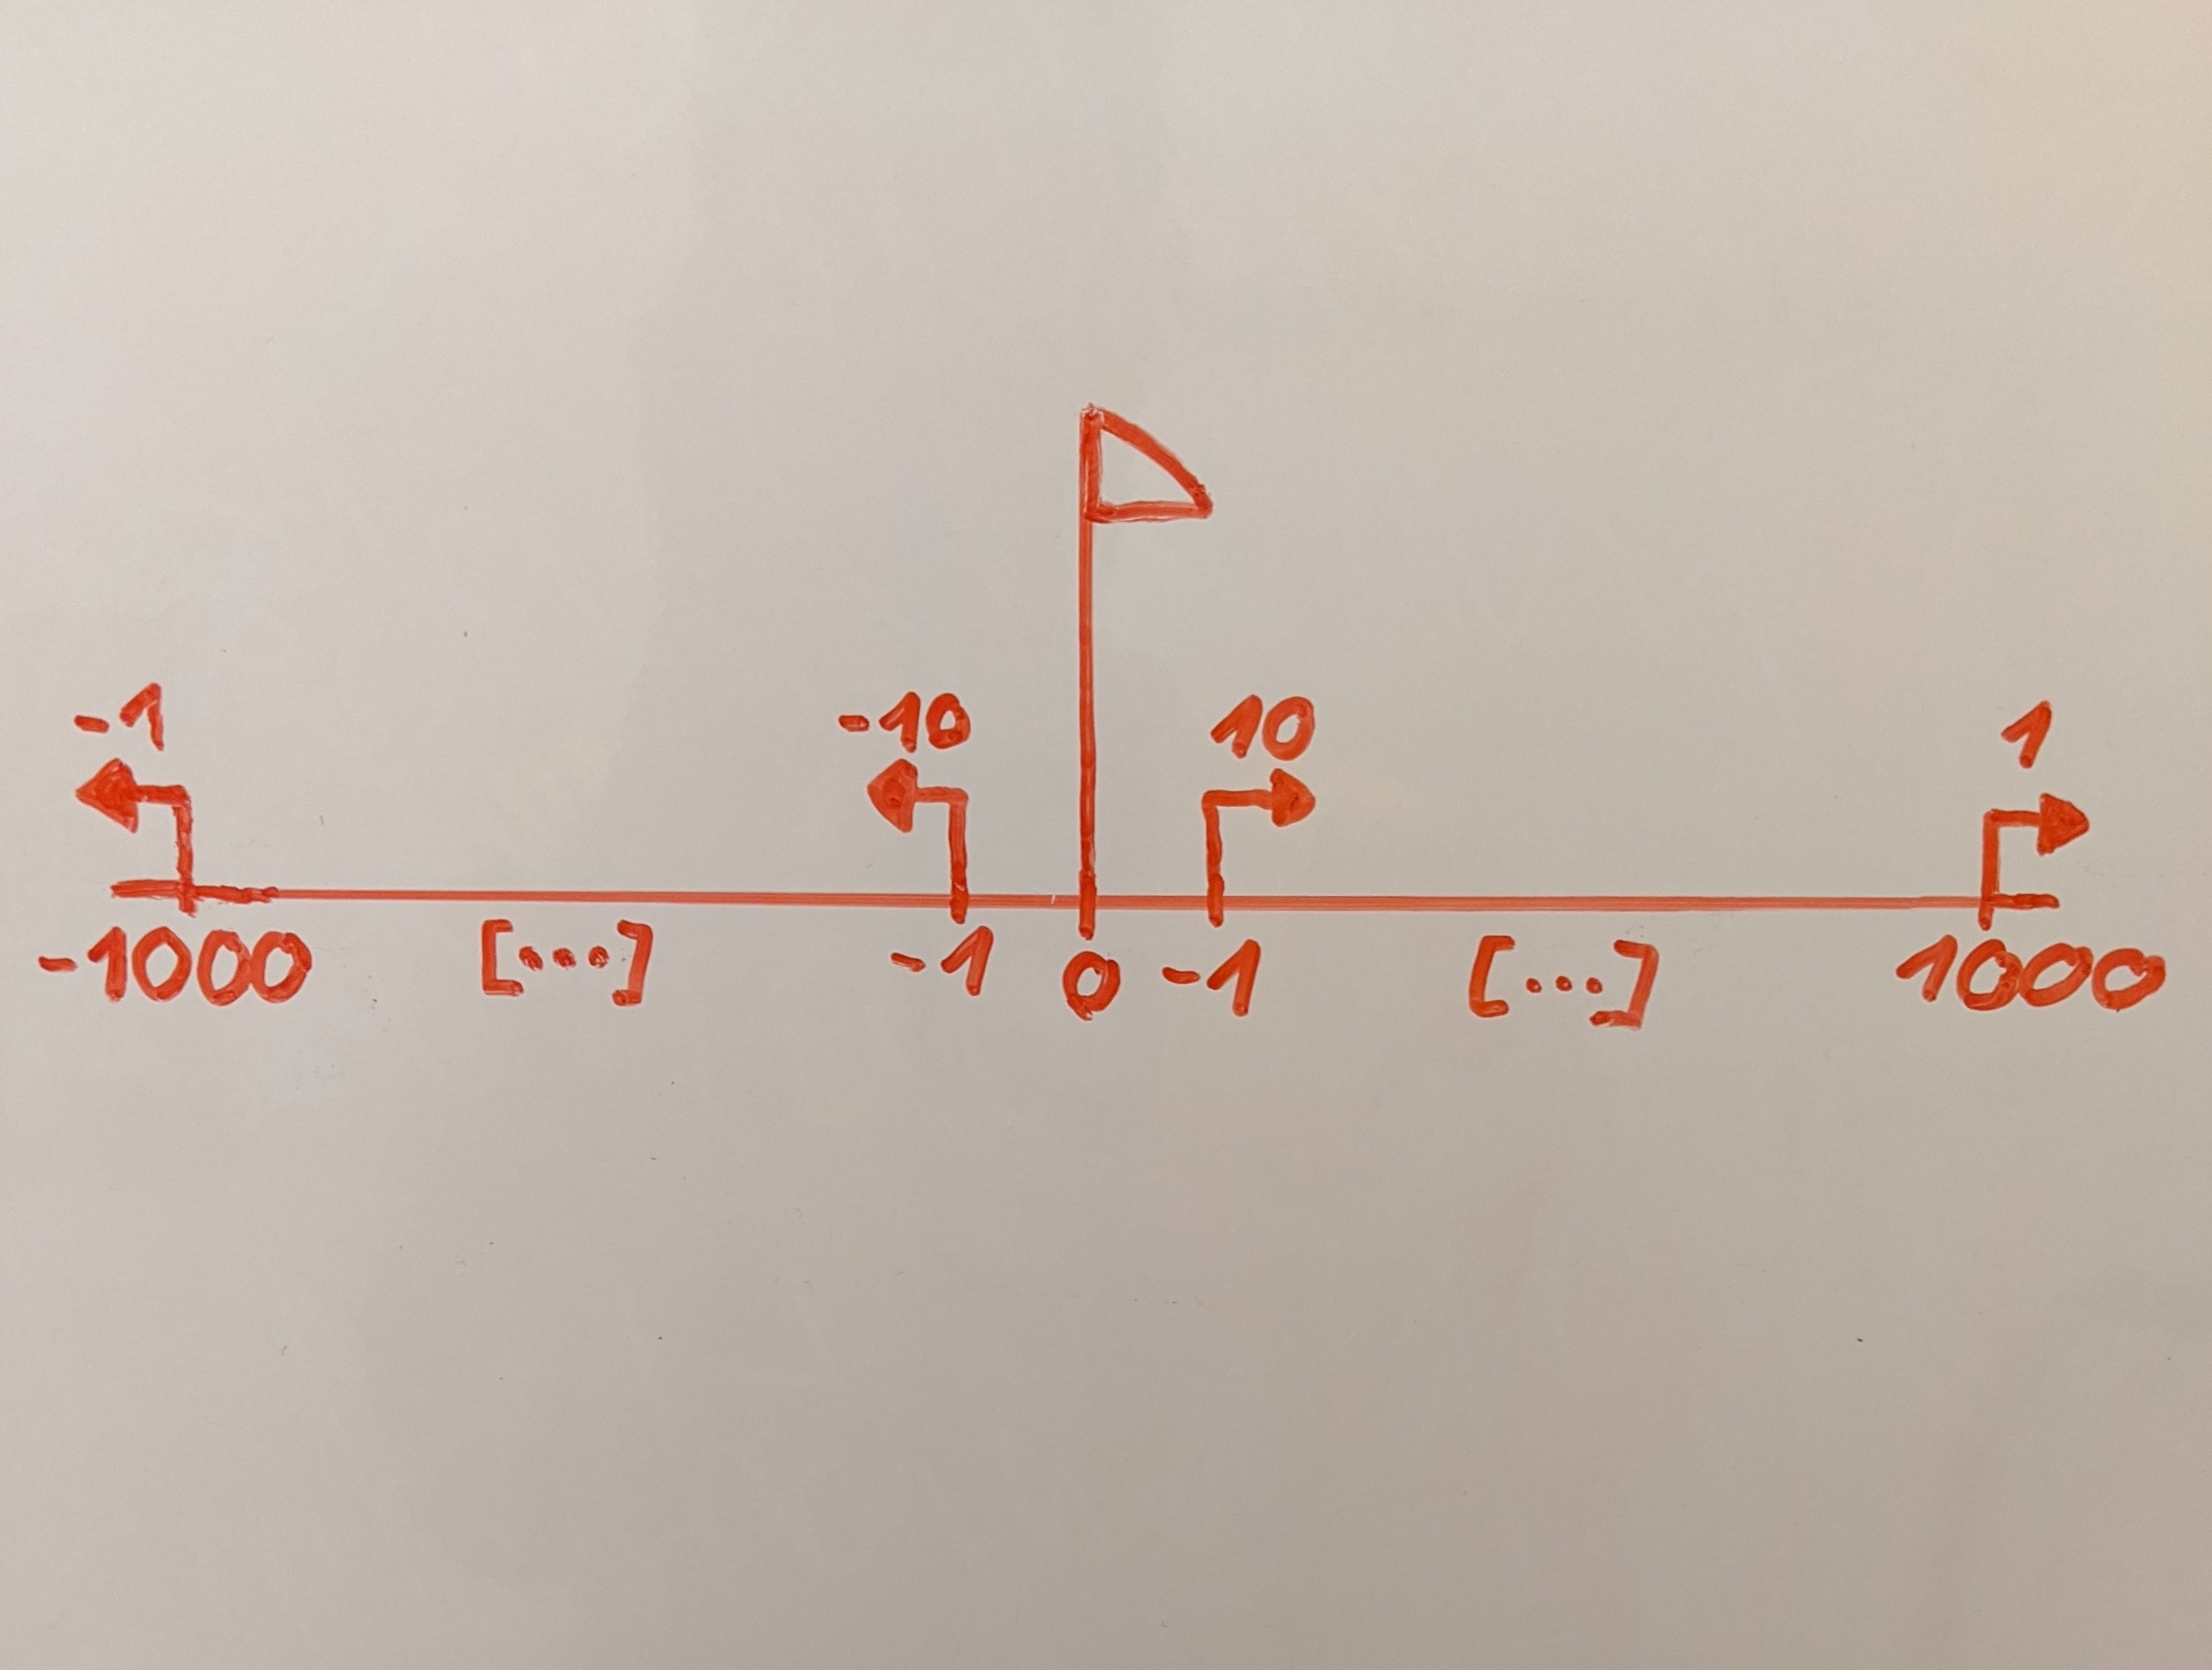 -1 -10 10 1
-1000 [...] -1 0 -1 [...] 1000